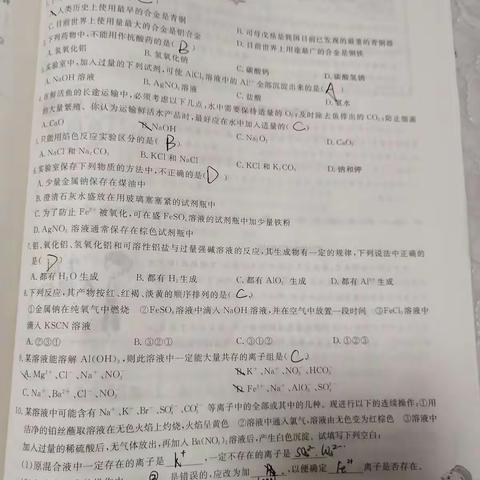 人类历史上使用最早的合金是青铜
C.目前世界上使用量最大的合金是铝合金
B.司母戊鼎是我国目前已发现的最重的青铜器
D.目前世界上用途最广的合金是钢铁
2.下列药物中,不能用作抗酸药的是( B )
A.氢氧化铝 B.氢氧化钠 C.碳酸钙 D.碳酸氢钠
实验室中,加入过量的下列试剂,可使AlCl₃溶液中的Al³⁺全部沉淀出来的是( A )
A.NaOH溶液 B.AgNO₃溶液 C.盐酸 D.氨水
在鲜活鱼的长途运输中,必须考虑以下几点,水中需要保持适量的O₂;及时除去鱼排出的CO₂;防止细菌
的大量繁殖。你认为运输鲜活水产品时,最好应在水中加入适量的( C )
A.CaO B.NaOH C.Na₂O₂ D.CaO₂
只能用焰色反应实验区分的是( B )
A.NaCl和Na₂CO₃ B.KCl和NaCl C.KCl和K₂CO₃ D.钠和钾
6.实验室保存下列物质的方法中,不正确的是( D )
A.少量金属钠保存在煤油中
B.澄清石灰水盛放在用玻璃塞塞紧的试剂瓶中
C.为了防止Fe²⁺被氧化,可在盛FeSO₄溶液的试剂瓶中加少量铁粉
D.AgNO₃溶液通常保存在棕色试剂瓶中
7.铝、氧化铝、氢氧化铝和可溶性铝盐与过量强碱溶液的反应,其生成物有一定的规律,下列说法中正确的
是( D )
A.都有H₂O生成 B.都有H₂生成 C.都有AlO₂⁻生成 D.都有Al³⁺生成
8.下列反应,其产物按红、红褐、淡黄的顺序排列的是( C )
①金属钠在纯氧气中燃烧 ②FeSO₄溶液中滴入NaOH溶液,并在空气中放置一段时间 ③FeCl₃溶液中
滴入KSCN溶液
A.②③① B.③①② C.③②① D.①②③
9.某溶液能溶解Al(OH)₃,则此溶液中一定能大量共存的离子组是( C )
A.Mg²⁺、Cl⁻、Na⁺、NO₃⁻ B.K⁺、Na⁺、NO₃⁻、HCO₃⁻
C.Na⁺、Ba²⁺、Cl⁻、NO₃⁻ D.Fe³⁺、Na⁺、AlO₂⁻、SO₄²⁻
10.某溶液中可能含有Na⁺、K⁺、Br⁻、SO₃²⁻、CO₃²⁻等离子中的全部或其中的几种。现进行以下的连续操作:①用
洁净的铂丝蘸取溶液在无色火焰上灼烧,火焰呈黄色 ②溶液中通入氯气,溶液由无色变为红棕色 ③溶液中
加入过量的稀硫酸后,无气体放出,再加入Ba(NO₃)₂溶液后,产生白色沉淀。试填写下列空白:
(1)原混合液中一定存在的离子是 K⁺ ,一定不存在的离子是
是错误的,应改为加 ,以便确定 离子是否存在。